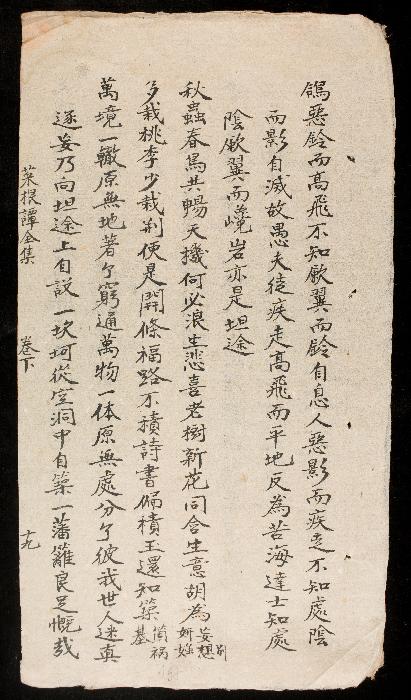 鴿惡鈴而高飛不知歛翼而鈴自息人惡影而疾走不知處陰
而影自滅故愚夫徒疾走高飛而平地反為苦海達士知處
陰歛翼而巉岩亦是坦途
秋蟲春鳥共暢天機何必浪生悲喜老樹新花同含生意胡為妄想別妍媸
多栽桃李少栽荊便是開條福路不積詩書偏積玉還知築箇禍基
萬境一轍原無地著个窮通萬物一体原無處分个彼我世人迷真
逐妄乃向坦途上自說一坎坷從空洞中自築一藩籬良足慨哉
菜根譚全集 卷下 十九